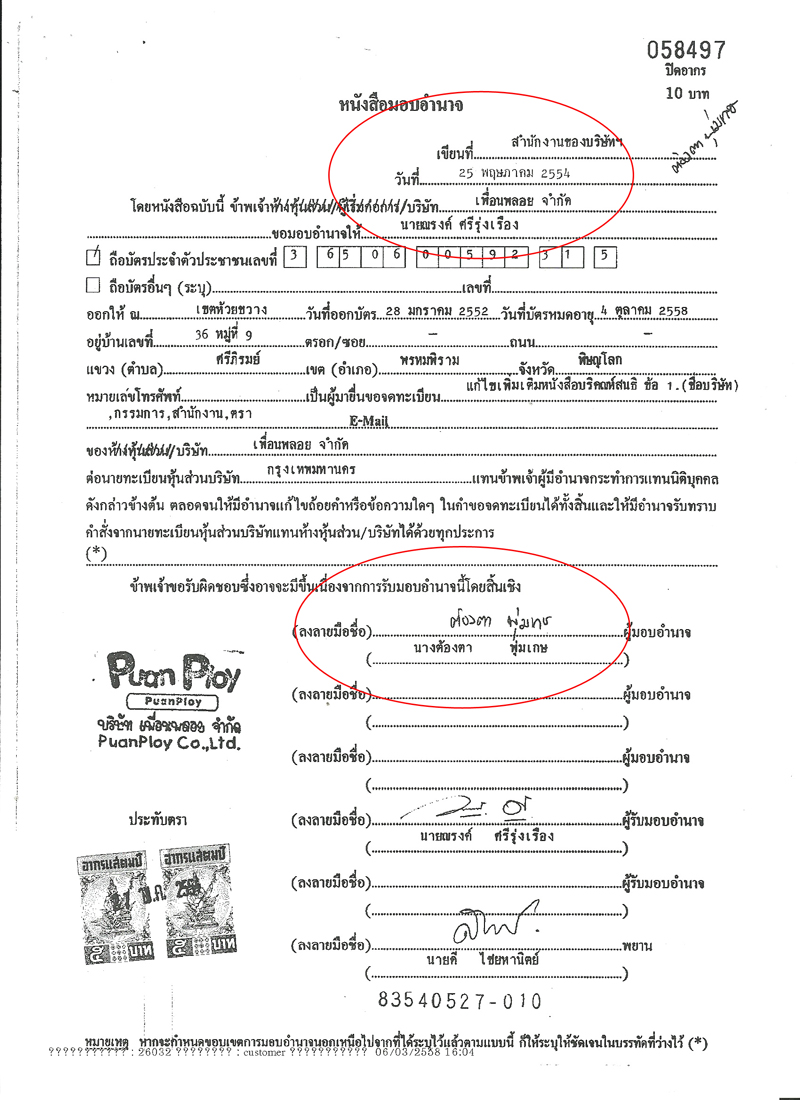 058497
ปิดอากร
10 บาท
หนังสือมอบอำนาจ
ต้องตา พุ่มเกษ
เขียนที่ สำนักงานของบริษัทฯ
วันที่ 25 พฤษภาคม 2554
โดยหนังสือฉบับนี้ ข้าพเจ้าห้างหุ้นส่วน/ผู้เริ่มก่อการ/บริษัท เพื่อนพลอย จำกัด
ขอมอบอำนาจให้ นายณรงค์ ศรีรุ่งเรือง
ถือบัตรประจำตัวประชาชนเลขที่ 3 65 06 00592 31 5
ถือบัตรอื่นๆ (ระบุ) เลขที่
ออกให้ ณ เขตห้วยขวาง วันที่ออกบัตร 28 มกราคม 2552 วันที่บัตรหมดอายุ 4 ตุลาคม 2558
อยู่บ้านเลขที่ 36 หมู่ที่ 9 ตรอก/ซอย – ถนน –
แขวง (ตำบล) ศรีภิรมย์ เขต (อำเภอ) พรหมพิราม จังหวัด พิษณุโลก
หมายเลขโทรศัพท์ เป็นผู้มายื่นขอจดทะเบียน แก้ไขเพิ่มเติมหนังสือบริคณห์สนธิ ข้อ 1.(ชื่อบริษัท)
,กรรมการ,สำนักงาน,ตรา
E-Mail
ของห้างหุ้นส่วน/บริษัท เพื่อนพลอย จำกัด
ต่อนายทะเบียนหุ้นส่วนบริษัท กรุงเทพมหานคร แทนข้าพเจ้าผู้มีอำนาจกระทำการแทนนิติบุคคล
ดังกล่าวข้างต้น ตลอดจนให้มีอำนาจแก้ไขถ้อยคำหรือข้อความใดๆ ในคำขอจดทะเบียนได้ทั้งสิ้นและให้มีอำนาจรับทราบ
คำสั่งจากนายทะเบียนหุ้นส่วนบริษัทแทนห้างหุ้นส่วน/บริษัทได้ด้วยทุกประการ
(*)
ข้าพเจ้าขอรับผิดชอบซึ่งอาจจะมีขึ้นเนื่องจากการรับมอบอำนาจนี้โดยสิ้นเชิง
(ลงลายมือชื่อ) ต้องตา พุ่มเกษ ผู้มอบอำนาจ
(นางต้องตา พุ่มเกษ)
Puan Ploy
PuanPloy
บริษัท เพื่อนพลอย จำกัด
PuanPloy Co.,Ltd.
(ลงลายมือชื่อ) ผู้มอบอำนาจ
( )
(ลงลายมือชื่อ) ผู้มอบอำนาจ
( )
ประทับตรา
(ลงลายมือชื่อ) ผู้รับมอบอำนาจ
(นายณรงค์ ศรีรุ่งเรือง)
อากรแสตมป์ อากรแสตมป์
บาท บาท
(ลงลายมือชื่อ) ผู้รับมอบอำนาจ
( )
(ลงลายมือชื่อ) พยาน
(นายคี ไชยหานิตย์)
83540527-010
หมายเหตุ หากจะกำหนดขอบเขตการมอบอำนาจนอกเหนือไปจากที่ได้ระบุไว้แล้วตามแบบนี้ ก็ให้ระบุให้ชัดเจนในบรรทัดที่ว่างไว้ (*)
??????????? : 26032 ???????? : customer ??????????? 06/03/2558 16:04